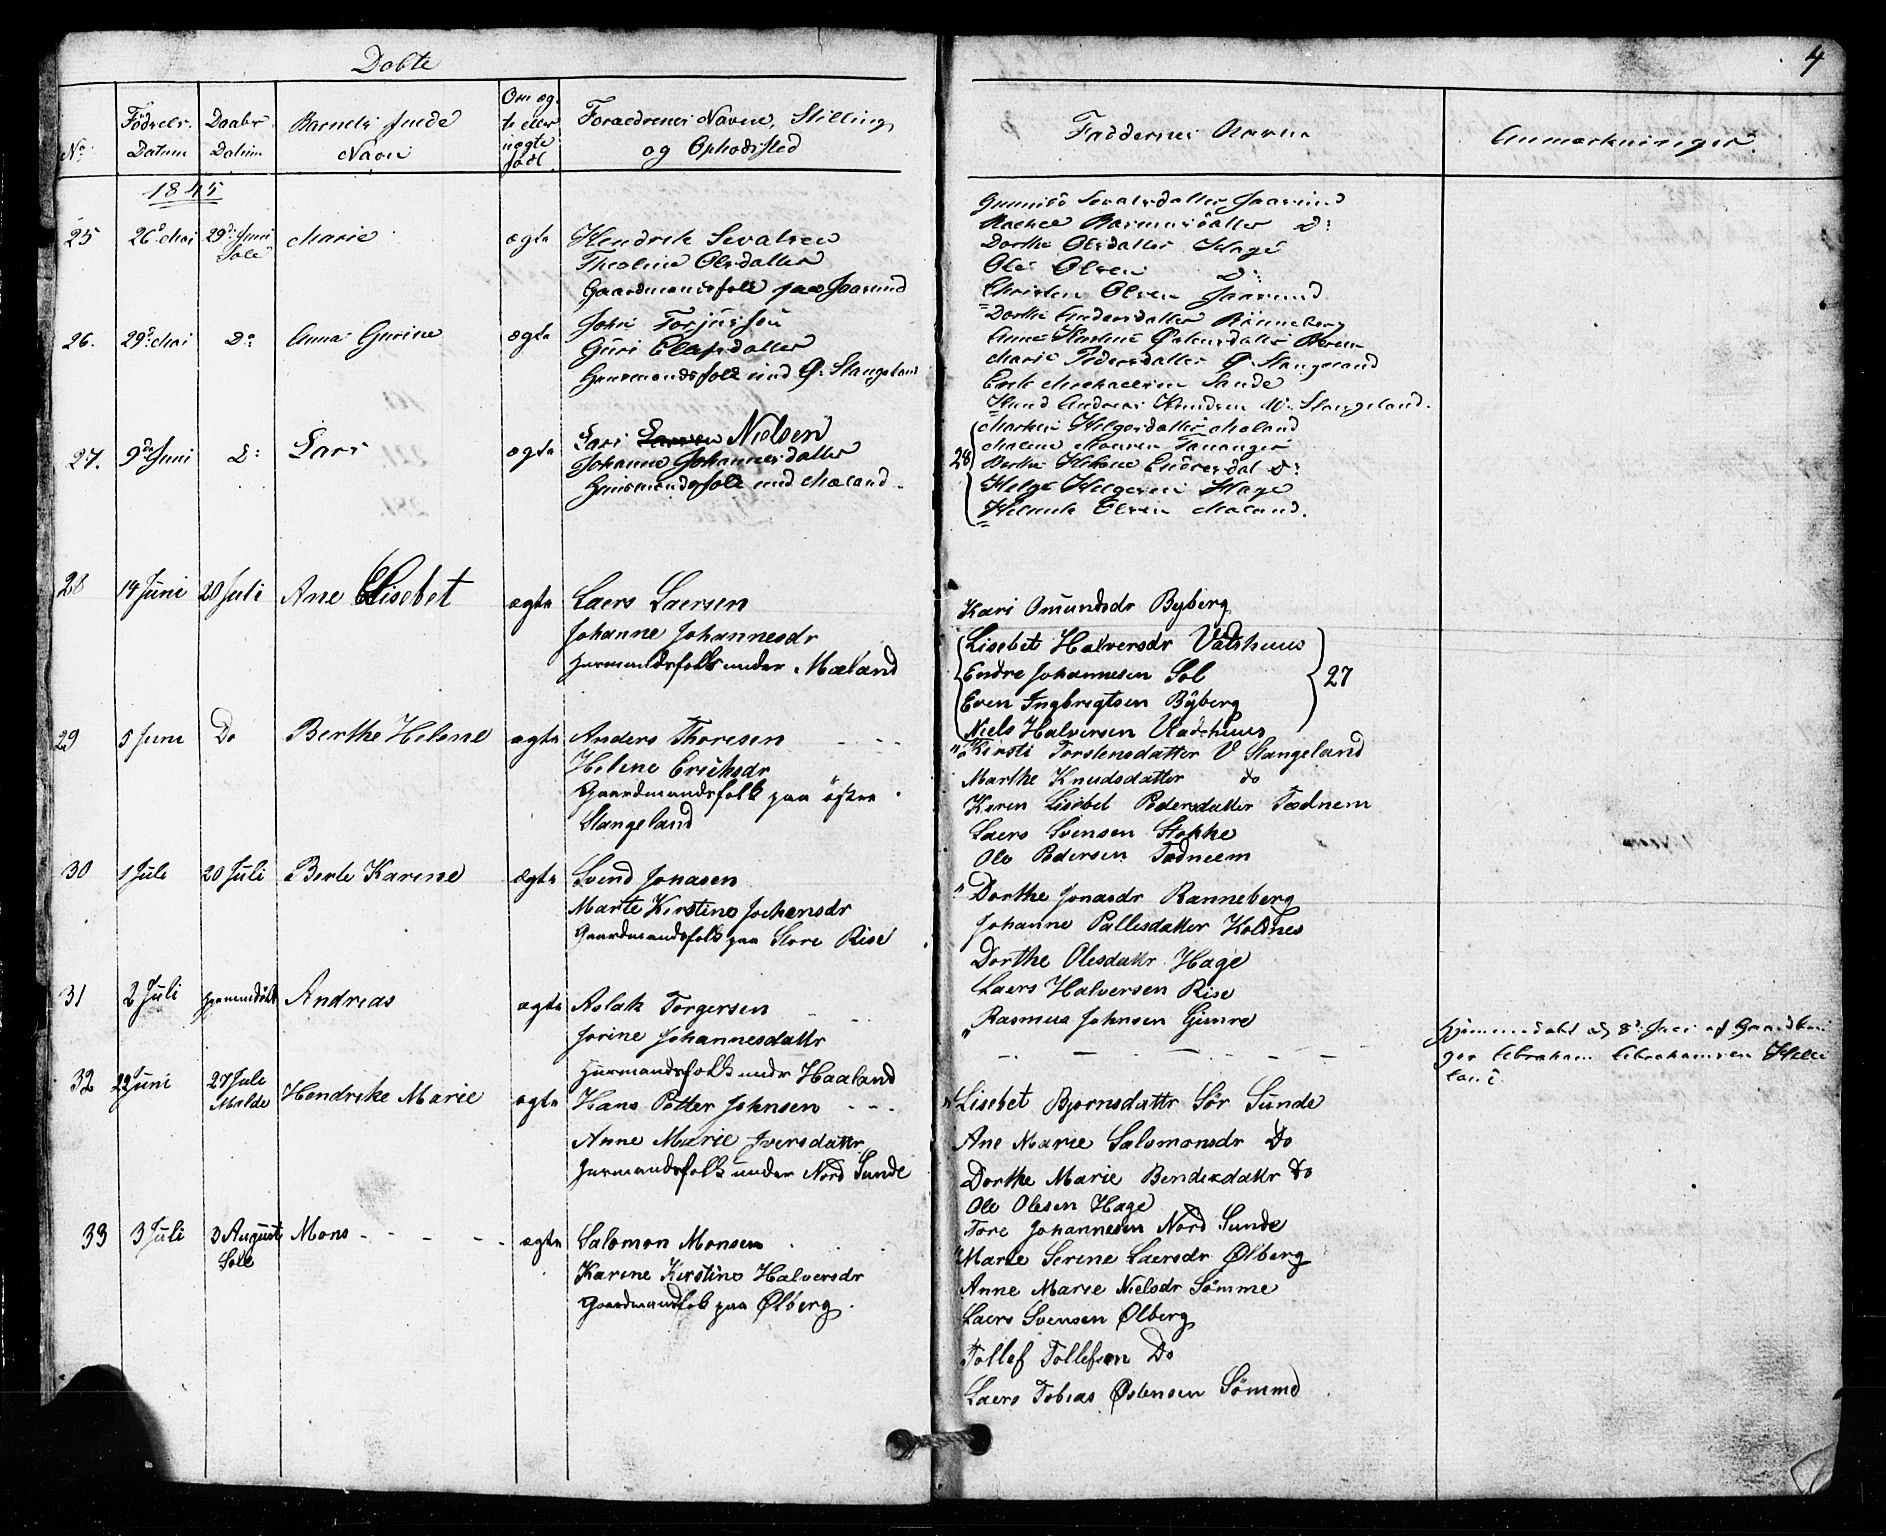 Døbte
4
No
Fødsels Datum
Daabs Datum
Barnets fulde Navn
Om ægte eller uægte født
Forældrenes Navne, Stilling og Opholdsted
Faddernes Navne
Anmærkninger.
1845
25 26d Mai 29d Juni Sole Marie ægte Hendrik Sevalsen
Theoline Olsdatter
Gaardmandsfolk paa Jaasund
Gunnild Sevalsdatter Jaasund
Rachel Rasmusdatter Do
Dorthe Olsdatter Hage
Ole Olsen Do
Christen Olsen Jaasund
26. 29d Mai Do Anna Gurine ægte John Torjussen
Guri Elasdatter
Huusmandsfolk und Ø. Stangeland
Dorthe Andersdatter Rønneberg
Anne Kirstine Østensdatter
Marie Pedersdatter Ø. Stangeland
Erik Michaelsen Sande
Knud Andreas Knudsen W. Stangeland.
27. 9de Juni Do Lars ægte Lars Larsen Nielsen
Johanne Johannesdatter
Huusmandsfolk und Mæland
28
Marken Helgesdatter Mæland
Malene Monsen Tananger
Berthe Helene Endresdat Do
Helge Helgesen Hage
Helmik Olsen Mæland.
28 14 Juni 20 Juli Ane Elisebet ægte Laers Laersen
Johanne Johannesdr
Huusmandsfolk under Mæland
Kari Omundsdr Byberg
Lisebet Halversdr Vatshuus
Endre Johannesen Sol
Even Ingbregtsen Byberg
Niels Halversen Vadshuus
27
29 5 Juni Do Berthe Helene ægte Anders Thoresen
Helene Erichsdr
Gaardmandsfolk paa østre
Stangeland
Kirsti Torstensdatter V Stangeland
Marthe Knudsdatter do
Karen Lisebet Pedersdatter Tødnem
Laers Svensen Stokke
Ole Pedersen Tødneem
30 1 Juli 20 Juli Berte Karine ægte Svend Jonasen
Marte Kirstine Jochensdr
Gaardmandsfolk paa Store Rise
Dorthe Jonasdr Ranneberg
Johanne Pallesdatter Kolnes
Dorthe Olesdattr Hage
Laers Halversen Rise
Rasmus Johnsen Gimre
31 2 Juli hjemmedøbt Andreas ægte Aslak Torgersen
Jorine Johannesdattr
Huusmandsfolk undr Haaland
Hjemmedøbt d 8d Juli af Gaardbru
ger Abraham Abrahamsen Helle
land.
32 22 Juni 27 Juli Malde Hendrike Marie ægte Hans Petter Johnsen
Anne Marie Iversdattr
Huusmandsfolk under Nord Sunde
Lisebet Bjornsdattr Sør Sunde
Ane Marie Salomonsdr Do
Dorthe Marie Bendixdattr Do
Ole Olesen Hage
Tore Johannesen Nord Sunde
33 3 Juli 3 August Sole Mons ægte Salomon Monsen
Karine Kirstine Halversdr
Gaardmandfolk paa Ølberg.
Marie Serine Laersdr Ølberg
Anne Marie Nielsdr Sömme
Laers Svensen Ølberg
Tollef Tollefsen Do
Laers Tobias Østensen Sömme